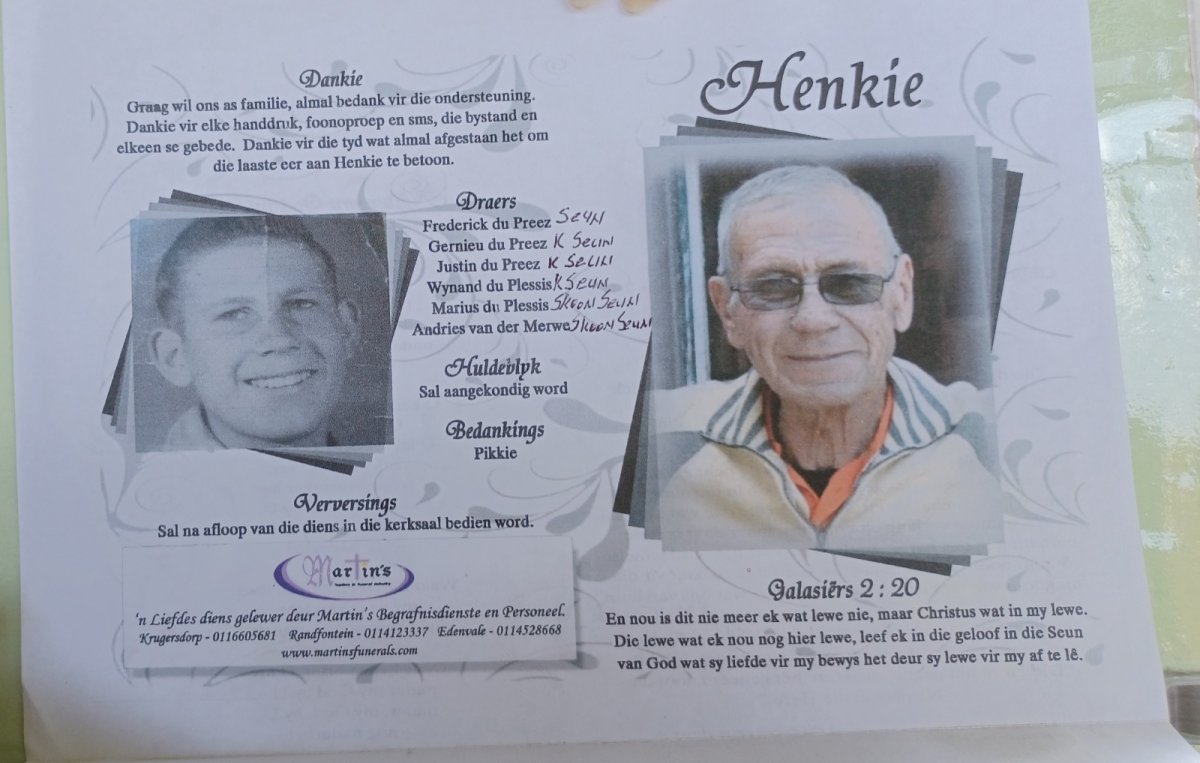 Dankie
Graag wil ons as familie, almal bedank vir die ondersteuning.
Dankie vir elke handdruk, foonoproep en sms, die bystand en
elkeen se gebede. Dankie vir die tyd wat almal afgestaan het om
die laaste eer aan Henkie te betoon.
Draers
Frederick du Preez SEUN
Gernieu du Preez K SEUN
Justin du Preez K SEUN
Wynand du Plessis K SEUN
Marius du Plessis SKOON SEUN
Andries van der Merwe SKOON SEUN
Huldeblyk
Sal aangekondig word
Bedankings
Pikkie
Verversings
Sal na afloop van die diens in die kerksaal bedien word.
Martin's
'n Liefdes diens gelewer deur Martin's Begrafnisdienste en Personeel.
Krugersdorp - 0116605681 Randfontein - 0114123337 Edenvale - 0114528668
www.martinsfunerals.com
Henkie
Galasiërs 2 : 20
En nou is dit nie meer ek wat lewe nie, maar Christus wat in my lewe.
Die lewe wat ek nou nog hier lewe, leef ek in die geloof in die Seun
van God wat sy liefde vir my bewys het deur sy lewe vir my af te lê.